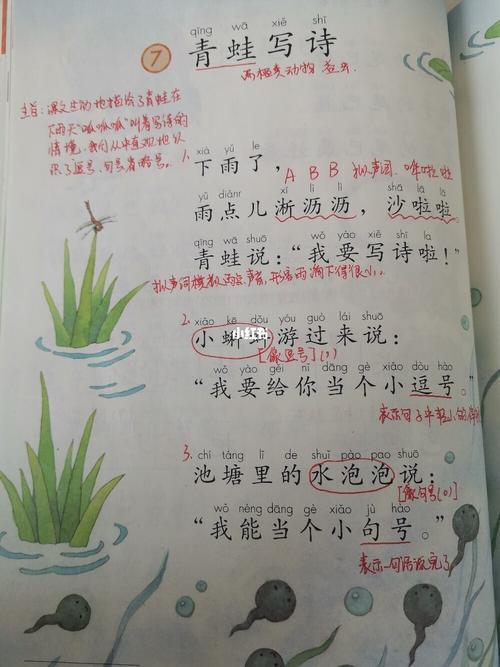 qīng wā xiě shī
7 青蛙写诗
两栖类动物 益虫.
主旨:课文生动地描绘了青蛙在
下雨天"呱呱呱"叫着写诗的
情境,我们从中直观地认
识了逗号、句号省略号。
1. xià yǔ le
下雨了, ABB 拟声词. 哗啦啦
yǔ diǎnr xī lì lì shā lā lā
雨点儿淅沥沥,沙啦啦。
qīng wā shuō wǒ yào xiě shī la
青蛙说:“我要写诗啦!”
拟声词模拟雨声,形容雨滴下得很小.
2. xiǎo kē dǒu yóu guò lái shuō
小蝌蚪游过来说:
小红书
[像逗号](,)
wǒ yào gěi nǐ dāng gè xiǎo dòu hào
“我要给你当个小逗号。”
表示句子中较小的停顿
3. chí táng lǐ de shuǐ pào pao shuō
池塘里的水泡泡说:
[像句号(。)]
wǒ néng dāng gè xiǎo jù hào
“我能当个小句号。”
表示一句话说完了